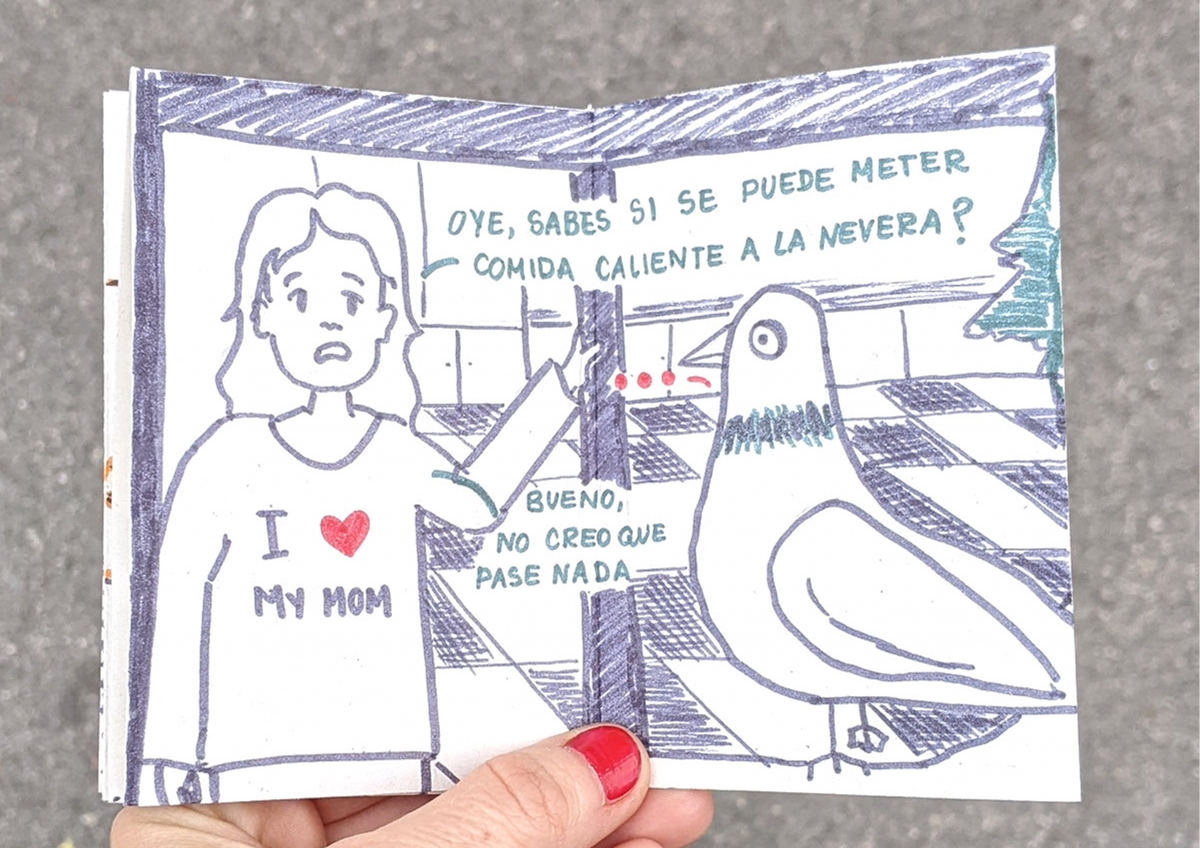 OYE, SABES SI SE PUEDE METER
COMIDA CALIENTE A LA NEVERA?
BUENO,
NO CREO QUE
PASE NADA
I ♥
MY MOM